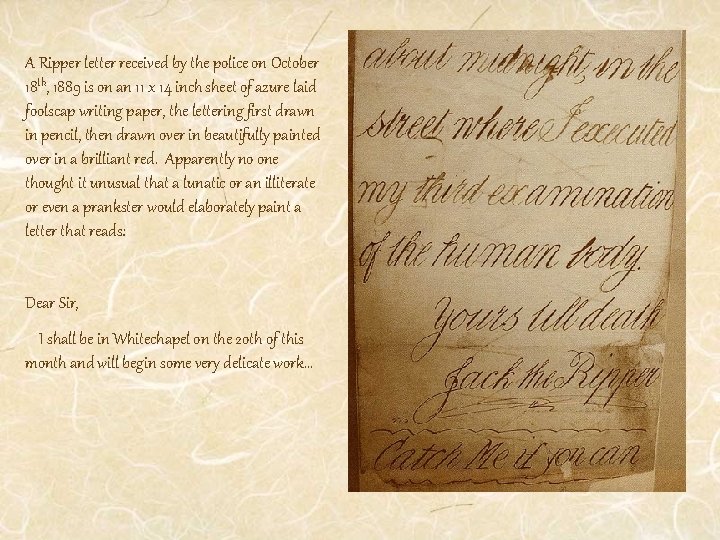 A Ripper letter received by the police on October
18th, 1889 is on an 11 x 14 inch sheet of azure laid
foolscap writing paper, the lettering first drawn
in pencil, then drawn over in beautifully painted
over in a brilliant red. Apparently no one
thought it unusual that a lunatic or an illiterate
or even a prankster would elaborately paint a
letter that reads:
Dear Sir,
I shall be in Whitechapel on the 20th of this
month and will begin some very delicate work...
about midnight, in the
street where I executed
my third examination
of the human body.
Yours till death
Jack the Ripper
Catch Me if you can